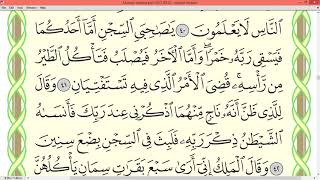 ٱلنَّاسِ لَا يَعْلَمُونَ ٤٠ يَٰصَٰحِبَيِ ٱلسِّجْنِ أَمَّآ أَحَدُكُمَا
فَيَسْقِى رَبَّهُۥ خَمْرًا ۖ وَأَمَّا ٱلْءَاخَرُ فَيُصْلَبُ فَتَأْكُلُ ٱلطَّيْرُ
مِن رَّأْسِهِۦ ۚ قُضِىَ ٱلْأَمْرُ ٱلَّذِى فِيهِ تَسْتَفْتِيَانِ ٤١ وَقَالَ
لِلَّذِى ظَنَّ أَنَّهُۥ نَاجٍ مِّنْهُمَا ٱذْكُرْنِى عِندَ رَبِّكَ فَأَنسَىٰهُ
ٱلشَّيْطَٰنُ ذِكْرَ رَبِّهِۦ فَلَبِثَ فِى ٱلسِّجْنِ بِضْعَ سِنِينَ ٤٢
وَقَالَ ٱلْمَلِكُ إِنِّىٓ أَرَىٰ سَبْعَ بَقَرَٰتٍ سِمَانٍ يَأْكُلُهُنَّ